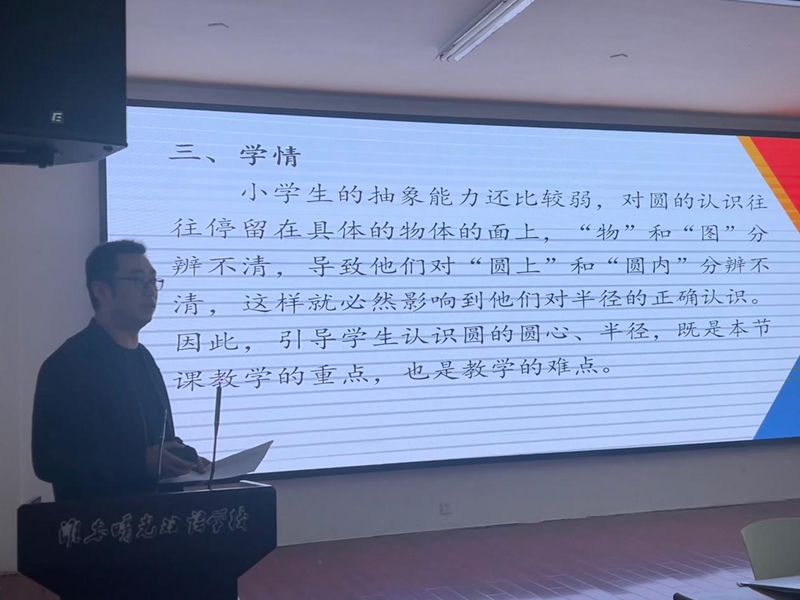 三、学情
小学生的抽象能力还比较弱，对圆的认识往
往停留在具体的物体的面上，“物”和“图”分
辨不清，导致他们对“圆上”和“圆内”分辨不
清，这样就必然影响到他们对半径的正确认识。
因此，引导学生认识圆的圆心、半径，既是本节
课教学的重点，也是教学的难点。
淮安曙光双语学校